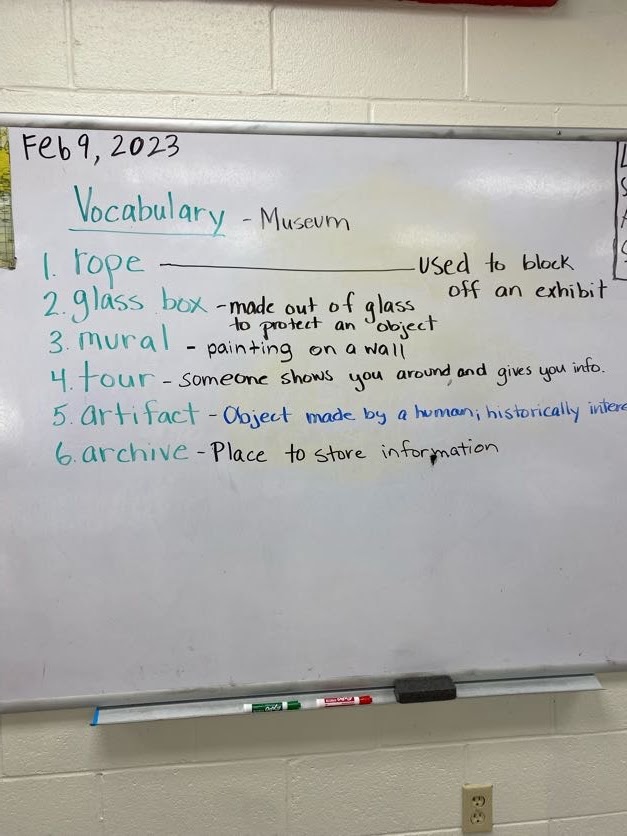 Feb 9, 2023
Vocabulary - Museum
1. rope — used to block
off an exhibit
2. glass box - made out of glass
to protect an object
3. mural - painting on a wall
4. tour - someone shows you around, and gives you info.
5. artifact - Object made by a human; historically
6. archive - Place to store information